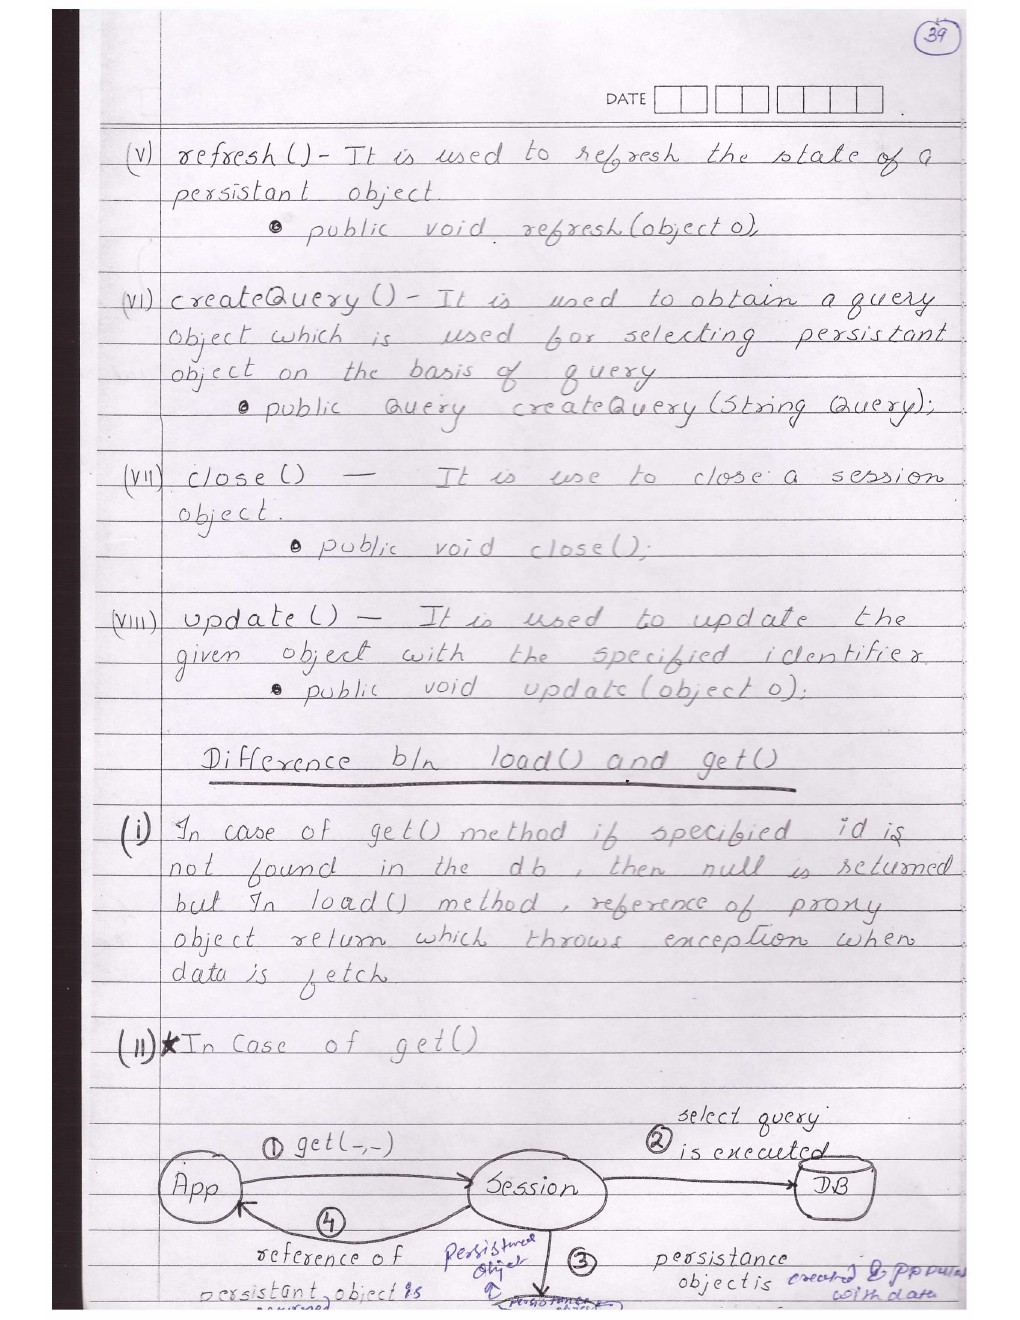 39
DATE
(v) refresh () - It is used to refresh the state of a
persistant object.
public void refresh (object o);
(VI) createQuery () - It is used to obtain a query
object which is used for selecting persistant
object on the basis of query
public Query createQuery (String Query);
(VII) close () — It is use to close a session
object.
public void close ();
(VIII) update () — It is used to update the
given object with the specified identifier.
public void update (object o);
Difference b/n load () and get ()
(i) In case of get () method if specified id is
not found in the db, then null is returned
but In load () method, reference of proxy
object return which throws exception when
data is fetch
(II) ★ In Case of get ()
select query
① get (-,-) ② is executed
App Session DB
④
reference of Persistured ③ persistance
object object is created &
persistant object is with data